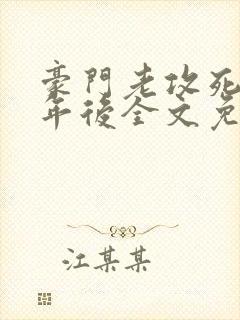 豪門老攻死
年後全文免
江某某